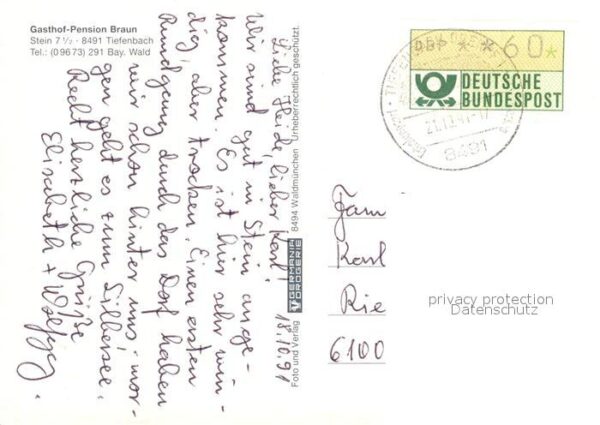 Gasthof-Pension Braun
Stein 7 1/2 · 8491 Tiefenbach
Tel.: (0 96 73) 291 Bay. Wald
18.10.91
Liebe Heide, lieber Karl!
Wir sind gut in Stein ange-
kommen. Es ist hier sehr win-
dig, aber trocken. Einen ersten
Rundgang durch das Dorf haben
wir schon hinter uns. Mor-
gen geht es zum Silbersee.
Recht herzliche Grüße
Elisabeth + Wolfgg.
Foto und Verlag GERMANIA DROGERIE 8494 Waldmünchen Urheberrechtlich geschützt.
DBP * * 60 *
DEUTSCHE
BUNDESPOST
8491
Fam
Karl
Rie
6100
privacy protection
Datenschutz